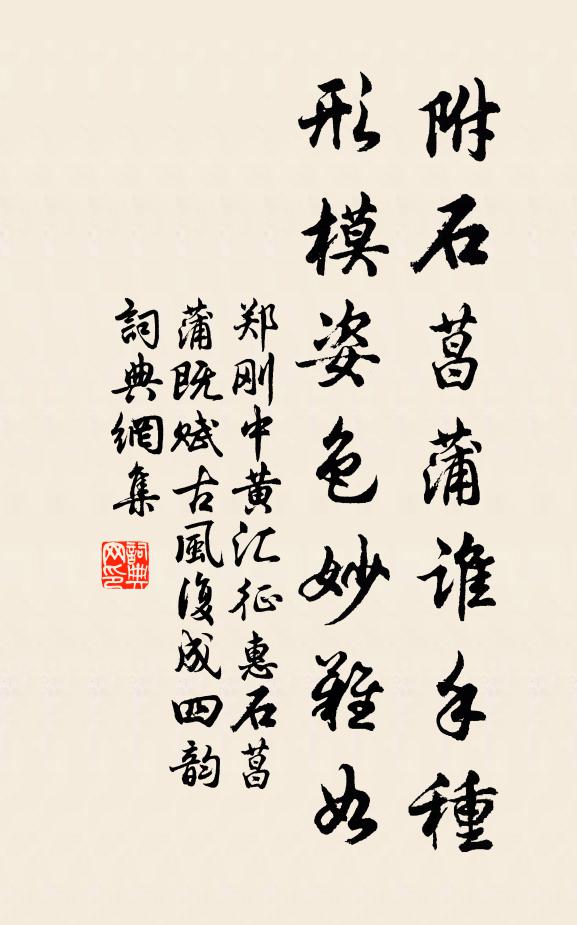 附石菖蒲谁手種
形模姿色妙難如
郑刚中黄汇征惠石菖
蒲既赋古風復成四韵
詞典網集
詞典网印